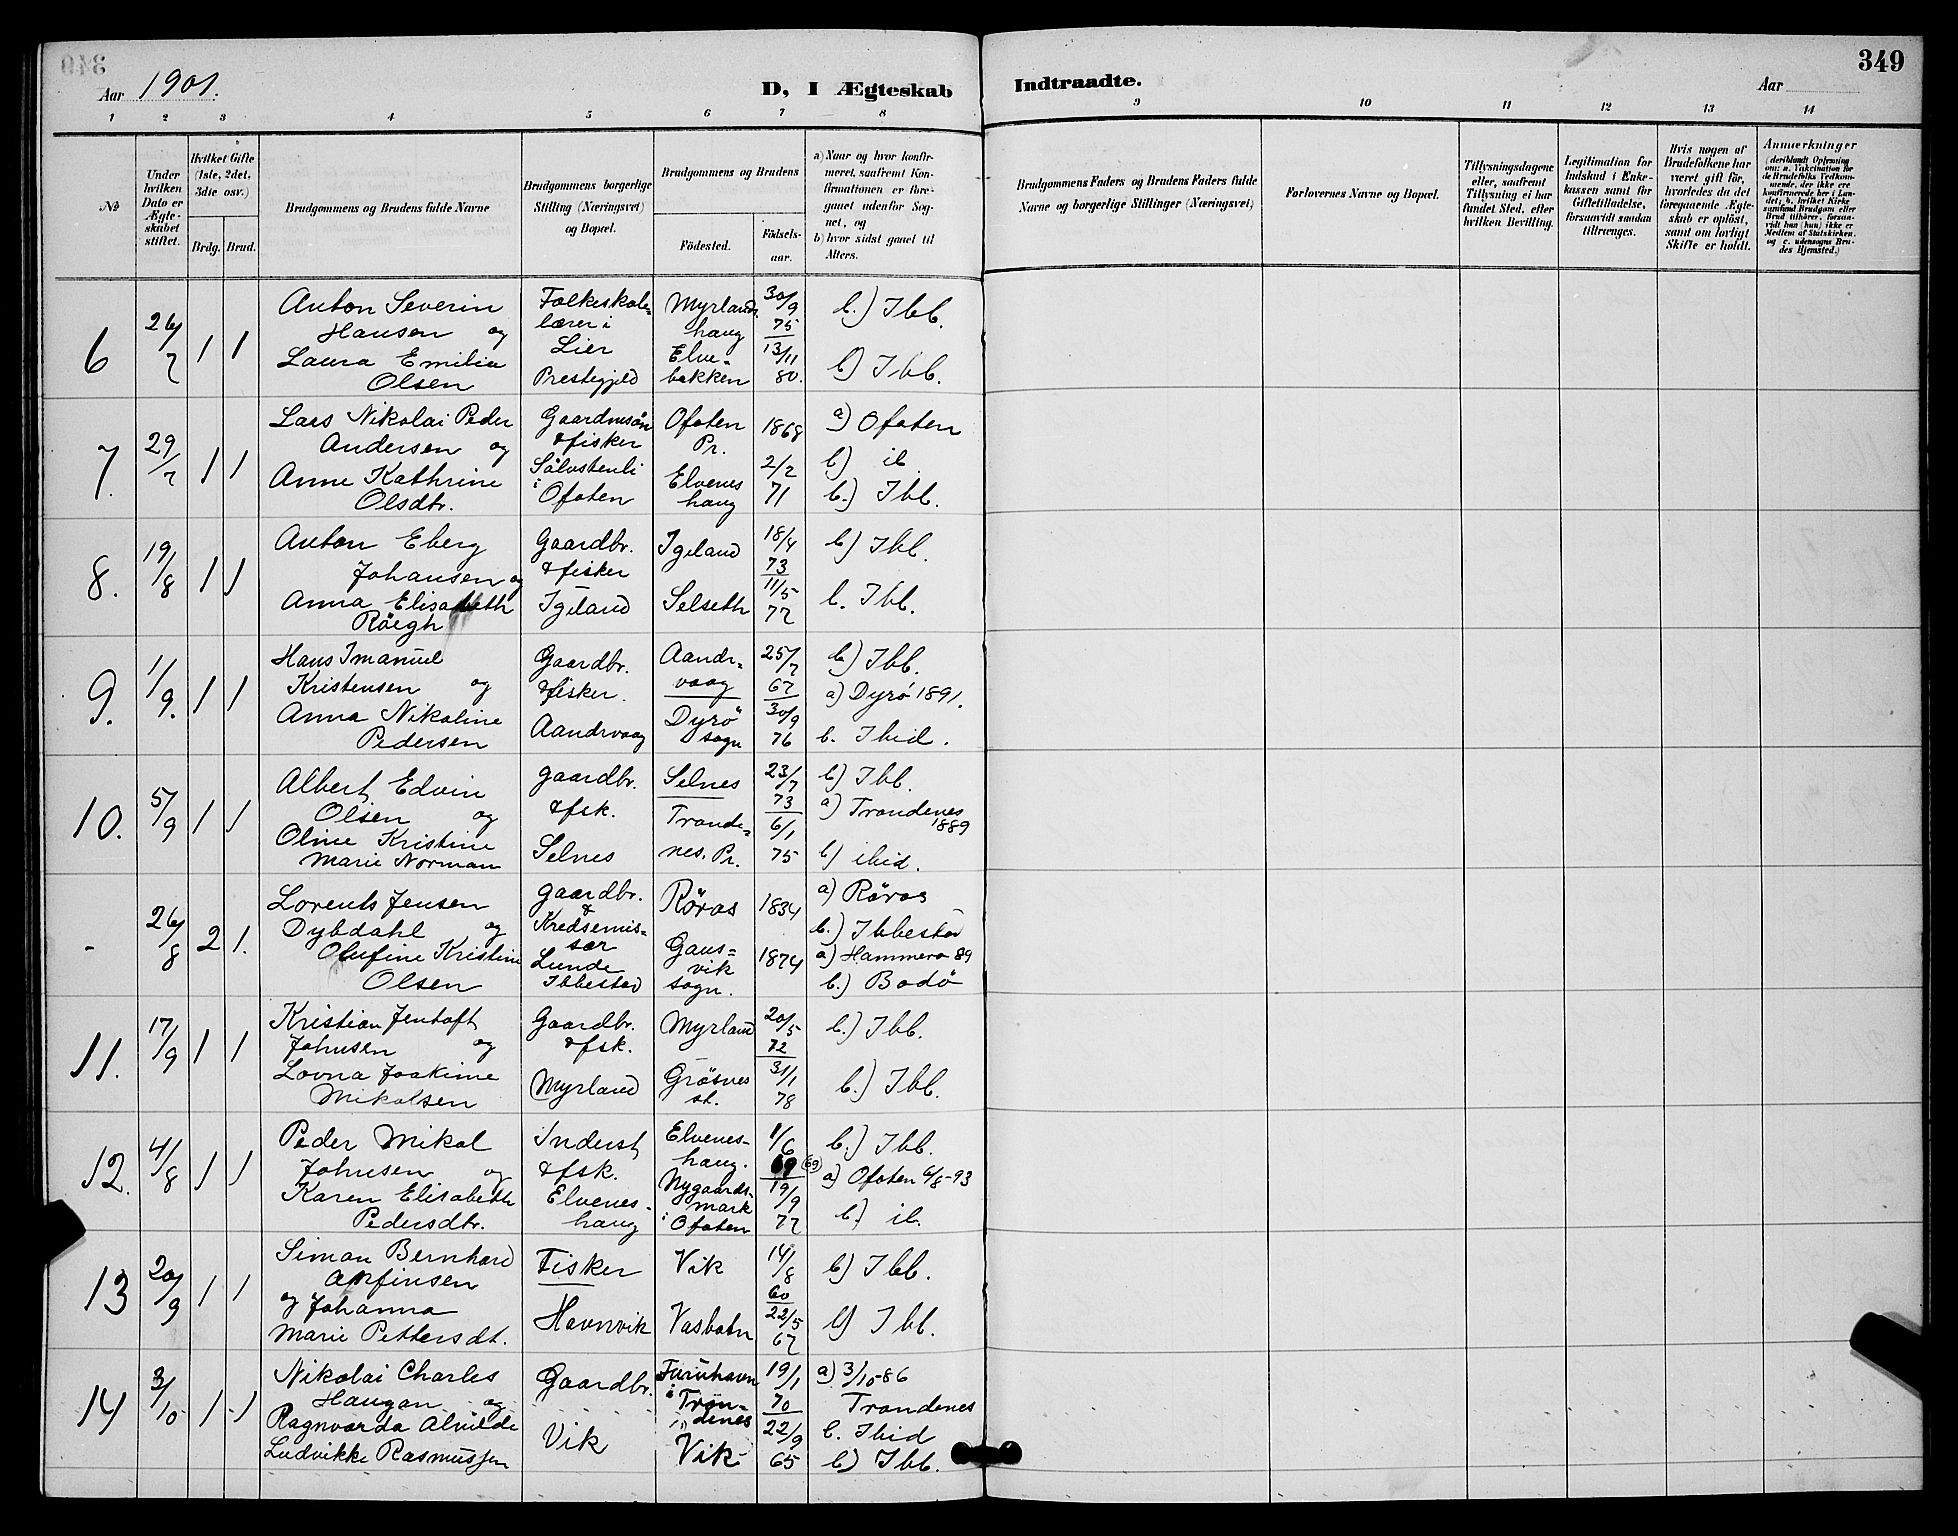 349
Aar 1901.
D, I Ægteskab Indtraadte.
Aar
1 2 3 4 5 6 7 8 9 10 11 12 13 14
No
Under hvilken Dato er Ægte-skabet stiftet.
Hvilket Gifte (1ste, 2det, 3die osv.)
Brdg. Brud.
Brudgommens og Brudens fulde Navne
Brudgommens borgerlige Stilling (Næringsvei) og Bopæl.
Brudgommens og Brudens
Fødested.
Fødsels-aar.
a) Naar og hvor konfir-meret, saafremt Kon-firmationen er fore-gaaet udenfor Sog-net, og
b) hvor sidst gaaet til Alters.
Brudgommens Faders og Brudens Faders fulde Navne og borgerlige Stillinger (Næringsvei)
Forlovernes Navne og Bopæl.
Tillysningsdagene eller, saafremt Tillysning ei har fundet Sted, efter hvilken Bevilling.
Legitimation for Indskud i Enke-kassen samt for Giftetilladelse, forsaavidt saadan tiltrænges.
Hvis nogen af Brudefolkene har været gift før, hvorledes da det foregaaende Ægte-skab er opløst, samt om lovligt Skifte er holdt.
Anmærkninger
(deriblandt Oplysning om: a. Vakcination for de Brudefolks Vedkom-mende, der ikke ere konfirmerede her i Lan-det; b. hvilket Kirke-samfund Brudgom eller Brud tilhører, forsaa-vidt han (hun) ikke er Medlem af Statskirken, og c. udensogns Bru-des Hjemsted.)
6 26/7 1 1
Anton Severin
Hansen og
Laura Emilie
Olsen
Folkeskole-
lærer i
Lier
Prestegjeld
Myrlands
haug
Elve-
bakken
30/9
75
13/11
80.
b.) Ibb.
b) Ibb.
7. 29/7 1 1
Lars Nikolai Peder
Andersen og
Anne Kathrine
Olsdtr.
Gaardmsøn
& fisker
Sølvstenli
i Ofoten
Ofoten
Pr.
Elvenes
haug
1868
2/2
71
a) Ofoten
b) ib.
b.) Ibb.
8. 19/8 1 1
Anton Eberg
Johansen og
Anna Elisabeth
Röegh
Gaardbr.
& fisker
Igeland
Igeland
Selseth
18/4
73
11/5
77
b) Ibb.
b. Ibb.
9. 1/9. 1 1
Hans Imanuel
Kristensen og
Anna Nikoline
Pedersen
Gaardbr.
& fisker.
Aandrvaag
Aandr-
vaag
Dyrö
sogn
25/7
67
30/9
76
b) Ibb.
a) Dyrö 1891.
b. Ibid.
10. 5/9 1 1
Albert Edvin
Olsen og
Oline Kristine
Marie Norman
gaardbr.
& fsk.
Selnes
Selnes
Tronde-
nes. Pr.
23/7
73
6/1
75
b) Ibb.
a) Trondenes
1889
b) ibid.
- 26/8 2 1.
Lorents Jensen
Dybdahl og
Olufine Kristine
Olsen
gaardbr.
&
Kredsemis-
sær
Lunde
Ibbestad
Röros
Gaus-
vik
sogn.
1834
1874
a) Röros
b.) Ibbestad
a) Hammerø 89
b.) Bodö
11. 17/9 1 1
Kristian Jentoft
Johnsen og
Lovna Joakime
Mikalsen
Gaardbr.
& fsk.
Myrland
Myrland
Grøsnes
st.
20/5
72
31/1
78
b.) Ibb.
b.) Ibb.
12. 4/8 1 1
Peder Mikal
Johnsen og
Karen Elisabeth
Pedersdtr.
Inderst
& fsk.
Elvenes-
haug
Elvenes-
haug.
Nygaards-
mark
i Ofoten
1/6
69 (69)
19/9
77
b.) Ibb.
a) Ofoten 6/8-93
b.) ib.
13 20/9 1 1
Simon Bernhard
Arfinsen
og Johanna
Marie Pettersdt.
Fisker
Havnvik
Vik
Vasbotn
14/8
60
22/5
67
b) Ibb.
b) Ibb.
14 3/10 1 1
Nikolai Charles
Haugan og
Ragnvarda Alvilde
Ludvikke Rasmussen
Gaardbr.
Vik
Furuhavn
i Tron-
denes
Vik
19/1
70
22/9
65
a) 3/10-86
Trondenes
b. Ibid
b) Ibb.